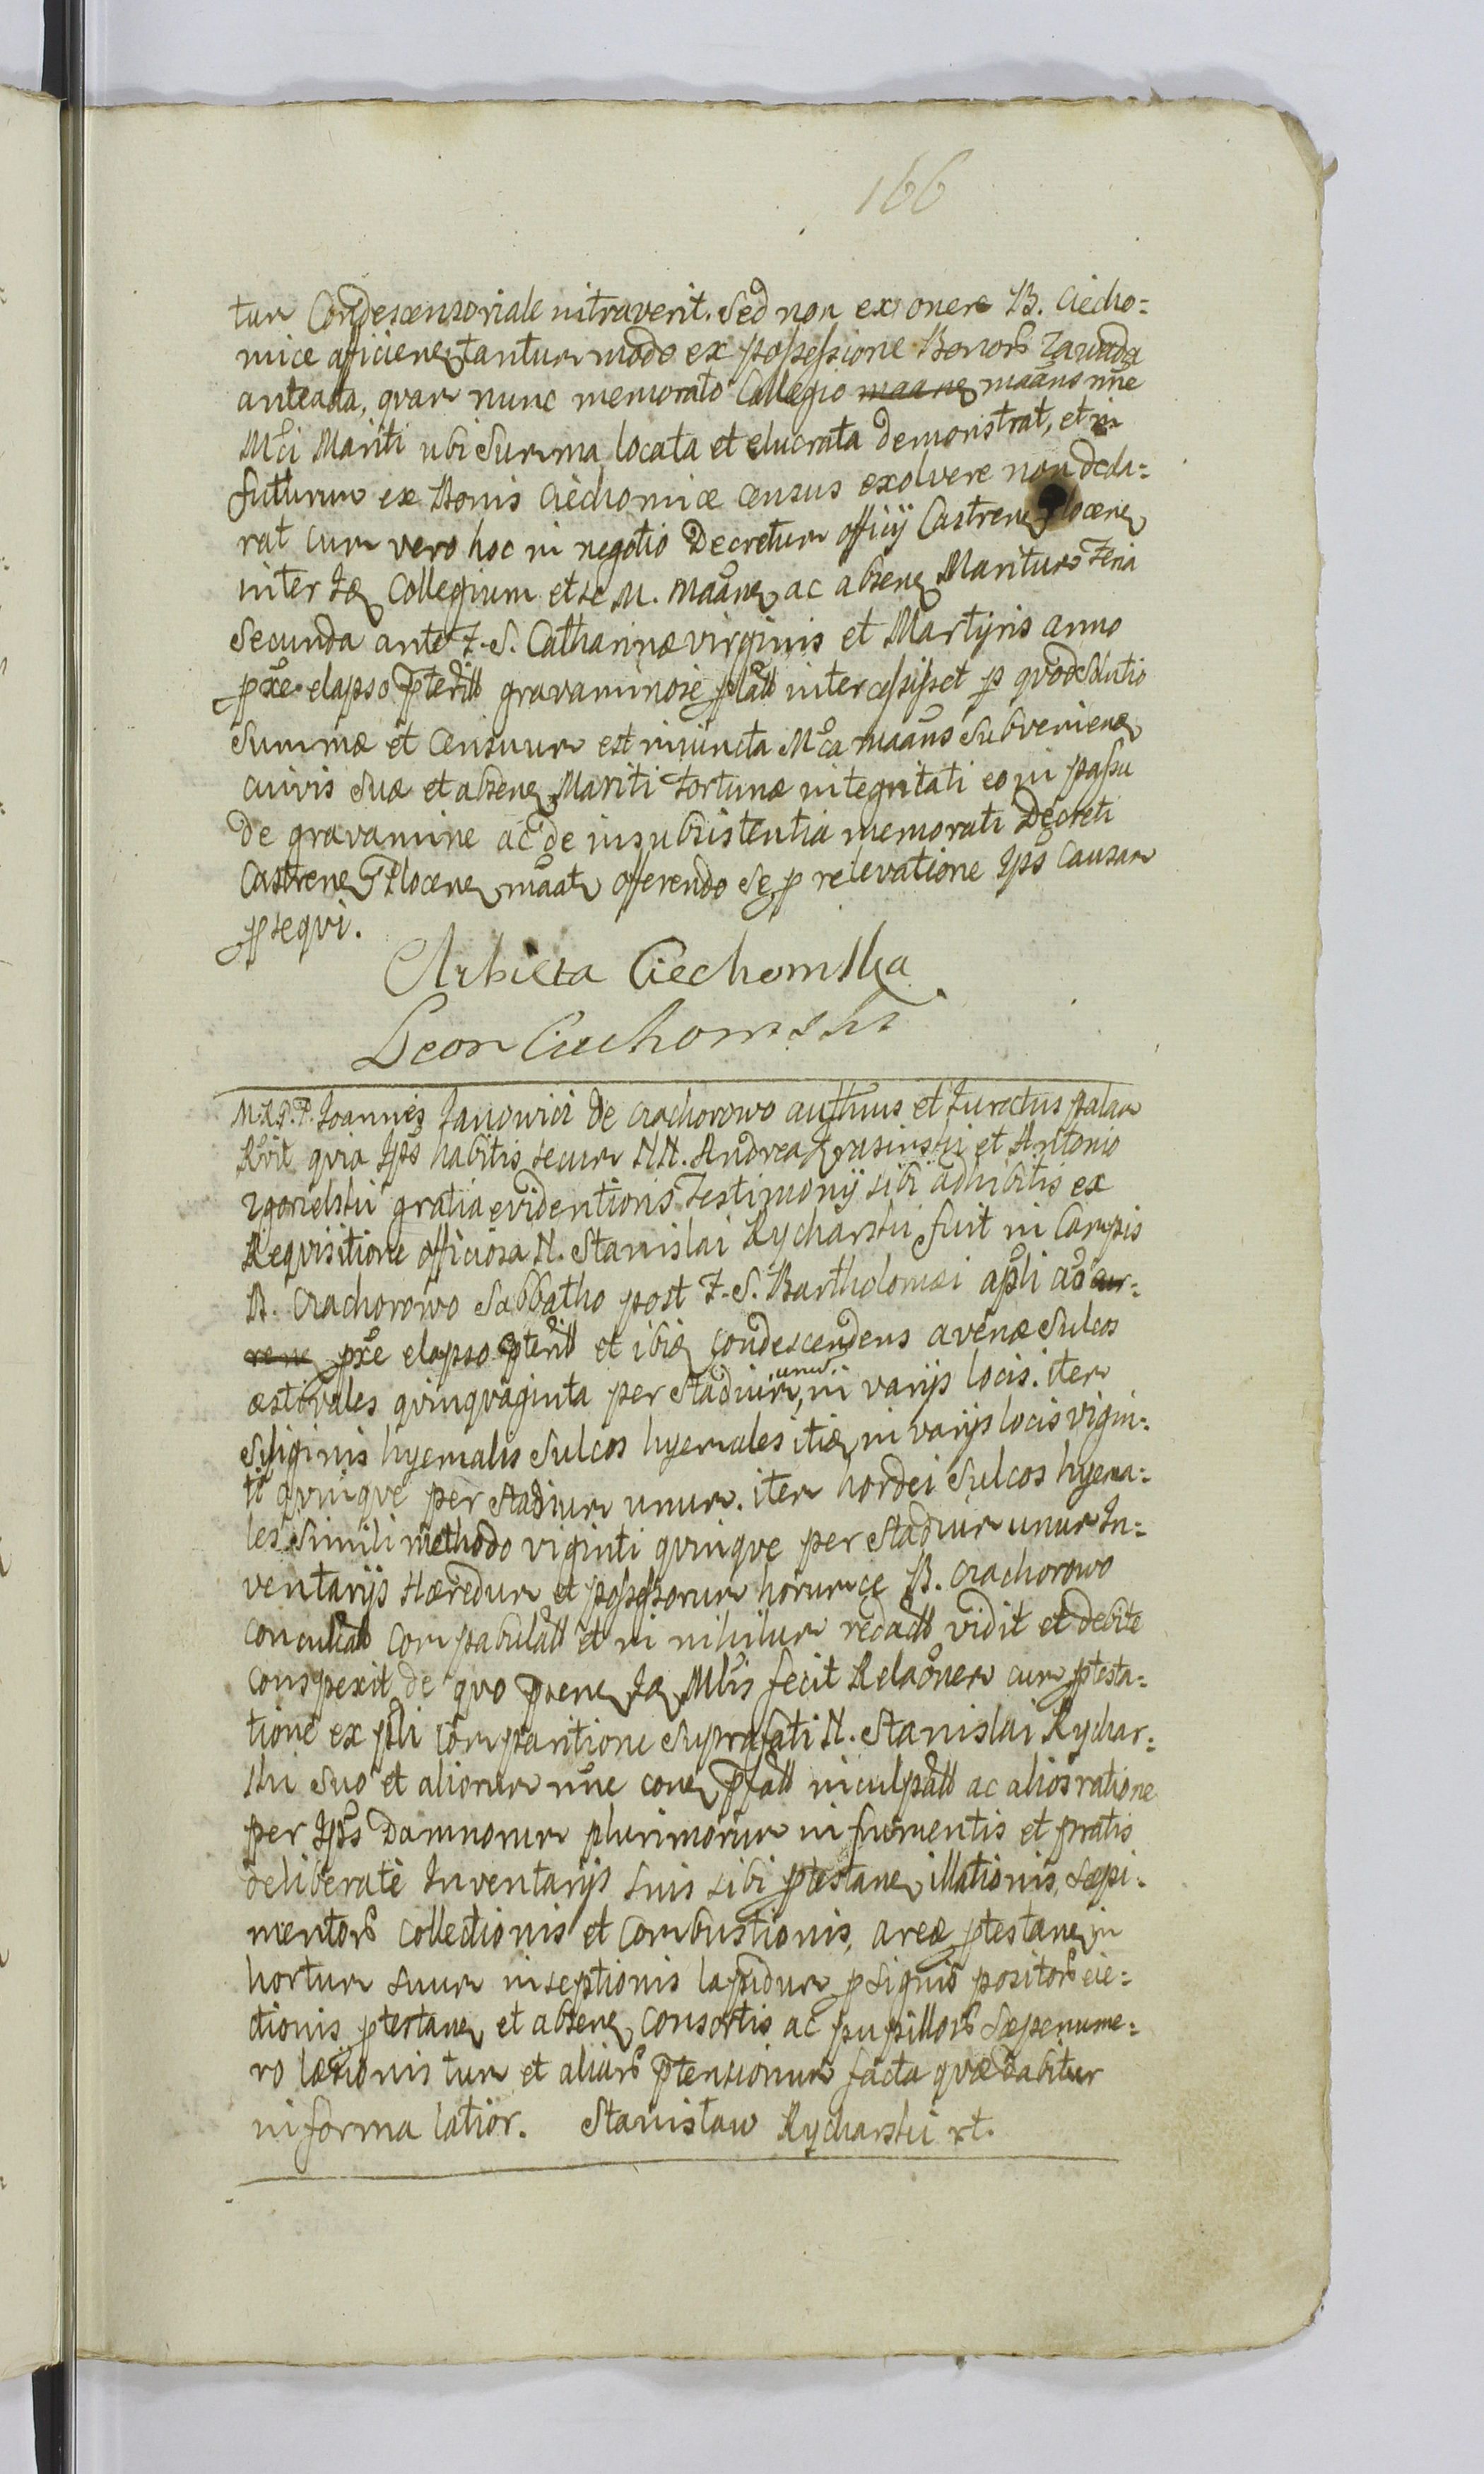 166
tur Condescensoriale intraverit. Sed non ex onere B. Ciecho=
mice afficienꝫ tantum modo ex possessione Bonorꝫ Zawada
anteacta, qvam nunc memorato Collegio maanꝫ maãns nñe
Mci Mariti ubi Summa locata et elucrata demonstrat, et in
futurum ex Bonis Ciechomice census exolvere non decla=
rat cum vero hoc in negotio Decretum officij Castrenꝫ Plocenꝫ
inter Idꝫ Collegium et se M. Maãnꝫ ac absenꝫ Maritum Feria
Secunda ante F. S. Catharinæ virginis et Martyris anno
pxe elapso pteritt gravaminose platt intercessisset p qvod Solutio
Summæ et Censuum est iniuncta Mca maãns Subvenienꝫ
cuivis Suæ et absenꝫ Mariti Fortunæ integritati eo in passu
De gravamine ac de insubsistentia memorati Decreti
Castrenꝫ Plocenꝫ maatr offerendo Se p relevatione Ips causam
psequi.
Arbieta Ciechomska
Leon Ciechomski
M. R. P. P. Joannes Janowici de Crachorowo authnus et Juratus palam
Rvit qvia Ips habitis secum NN. Andrea Krasinski et Antonio
Zgorielski gratia evidentioris Testimonij sibi adhibitis ex
Reqvisitione officiosa N. Stanislai Rycharski fuit in Campis
B. Crachorowo Sabbatho post F. S. Bartholomæi apli ao cur=
renꝫ pxe elapso pteritt et ibidꝫ condescendens avenæ Sulcos
æstivales qvinqvaginta per Stadium unum, in varijs locis. item
Siliginis hyemalis Sulcos hyemales itidꝫ in varijs locis vigin=
ti qvinqve per Stadium unum. item hordei Sulcos hyema=
les Simili methodo viginti qvinqve per Stadium unum In=
ventarijs Hæredum et possessorum horumce B. Crachorowo
conculcatt compabulatt et in nihilum redactt vidit et debite
conspexit de qvo pnenꝫ Idꝫ Mlis fecit Relaõnem cum ptesta=
tione ex pli Comparitione Suprafati N. Stanislai Rychar=
ski Suo et aliorum nñe conꝫ pfatt inculpatt ac alios ratione
per Ips Damnorum plurimorum in frumentis et pratis
deliberate Inventarijs suis sibi ptestanꝫ illationis, Sæpi=
mentorꝫ Collectionis et Combustionis, areæ ptestanꝫ in
hortum suum inseptionis lapidum p signis positorꝫ eie=
ctionis ptestanꝫ et absenꝫ Consortis ac pupillorꝫ Sæpenume=
ro læsionis tum et aliarꝫ ptensionum facta qvæ dabitur
in forma latior. Stanisław Rycharski rt.